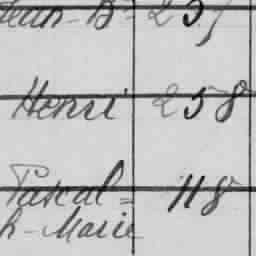 Jean-B- 257
Henri 258
Pascal= 118
h-Marie